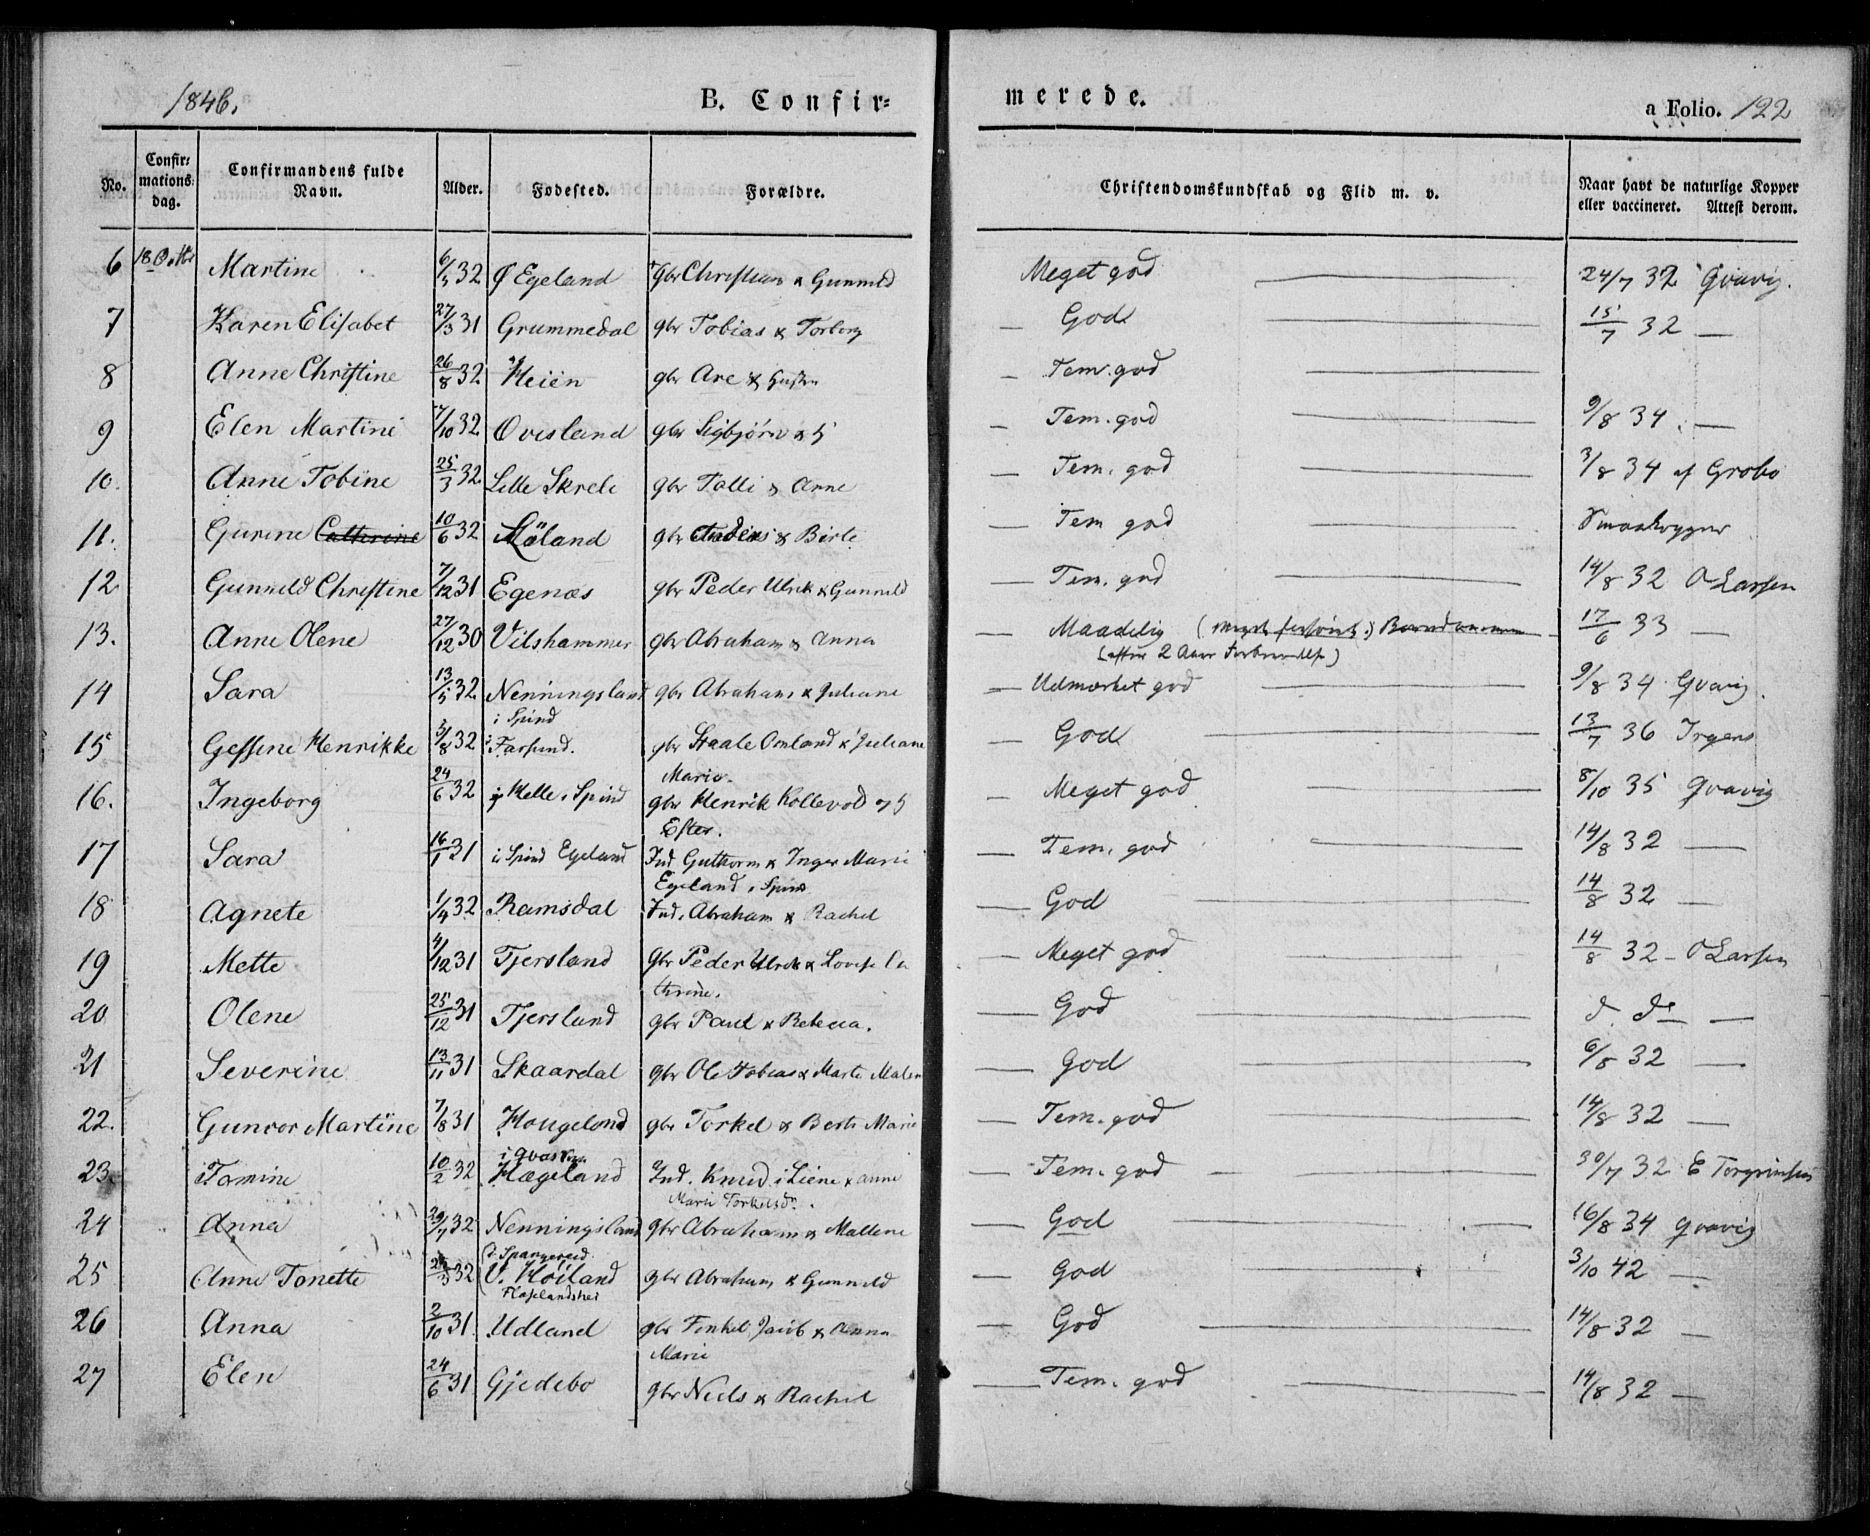 1846.
B. Confir=
merede.
a Folio. 122
No.
Confir=
mations=
dag.
Confirmandens fulde
Navn.
Alder.
Fødested.
Forældre.
Christendomskundskab og Flid m. v.
Naar havt de naturlige Kopper
eller vaccineret. Attest derom.
6 18 Octbr Martine 32 Egeland gbr Christian & Gunnild Meget god 24/7 32 Qvavig.
7 Karen Elisabet 27/3 31 Grummedal gbr Tobias & Torborg — God 15/7 32 —
8 Anne Christine 26/8 32 Heien gbr Are & — Tem. god
9 Elen Martine 7/10 32 Ovesland gbr Sigbjørn & — Tem. god 9/8 34. —
10. Anne Tobine 25/3 32 Lille Skrele gbr Talli & Anne — Tem. god 3/8 34 af Grobo
11. Gurine Cathrine 10/6 32 gbr & Birte — Tem god Smaakopper
12 Gunnild Christine 7/12 31 Egenæs gbr Peder Ulrik & Gunnild — Tem. god 14/8 32 O Larsen
13. Anne Olene 27/12 30 Vilshammer gbr Abraham & Anna — Maadelig 17/6 33 —
(efter 2 Aars )
14 Sara 13/5 32 Nenningsland gbr Abraham & Juliane — Udmærket god 9/8 34 Qvavig.
i Spind
15 Gessine Henrikke 3/8 32 Farsund. gbr Staale Omland & Juliane — God 13/7 36 Irgens
Marie.
16. Ingeborg 24/6 32 Helle i Spind gbr Henrik Kollevold og — Meget god 8/10 35 Qvavig
Ester.
17 Sara 16/1 31 i Spind Egeland Ind Guthorm & Inger Marie — Tem. god 14/8 32 —
Egeland i Spind
18 Agnete 1/4 32 Ramsdal Ind. Abraham & Rachel — God 14/8 32 —
19 Mette 4/12 31 Tjersland gbr Peder Ulrik & Lovise Ca — Meget god 14/8 32 – O Larsen
thrine.
20 Olene 25/12 31 Tjersland gbr Paul & Rebecca. — God d. do —
21 Severine 13/11 31 Skaardal gbr Ole Tobias & Marte Malen — God 6/8 32 —
22. Gunvor Martine 7/8 31 Hougeland gbr Torkel & Berte Marie — Tem. god 14/8 32 —
23. Tomine 10/2 32 Hægeland Ind. Knud i Liene & Anne — Tem. god 30/7 32 E Torgrimsen
Marie Torkelsd.
24 Anna 29/7 32 Nenningsland gbr Abraham & Mallene — God 16/8 34 Qvavig
i Spangereid
25 Anne Tonette 32 V. Høiland gbr Abraham & Gunnild — God 3/10 42 —
26 Anna 2/10 31. Udland gbr Tenkel Jacob & Anna — God 14/8 32 —
Marie
27 Elen 24/6 31 Gjedebo gbr Niels & Rachel — Tem. god 14/8 32 —